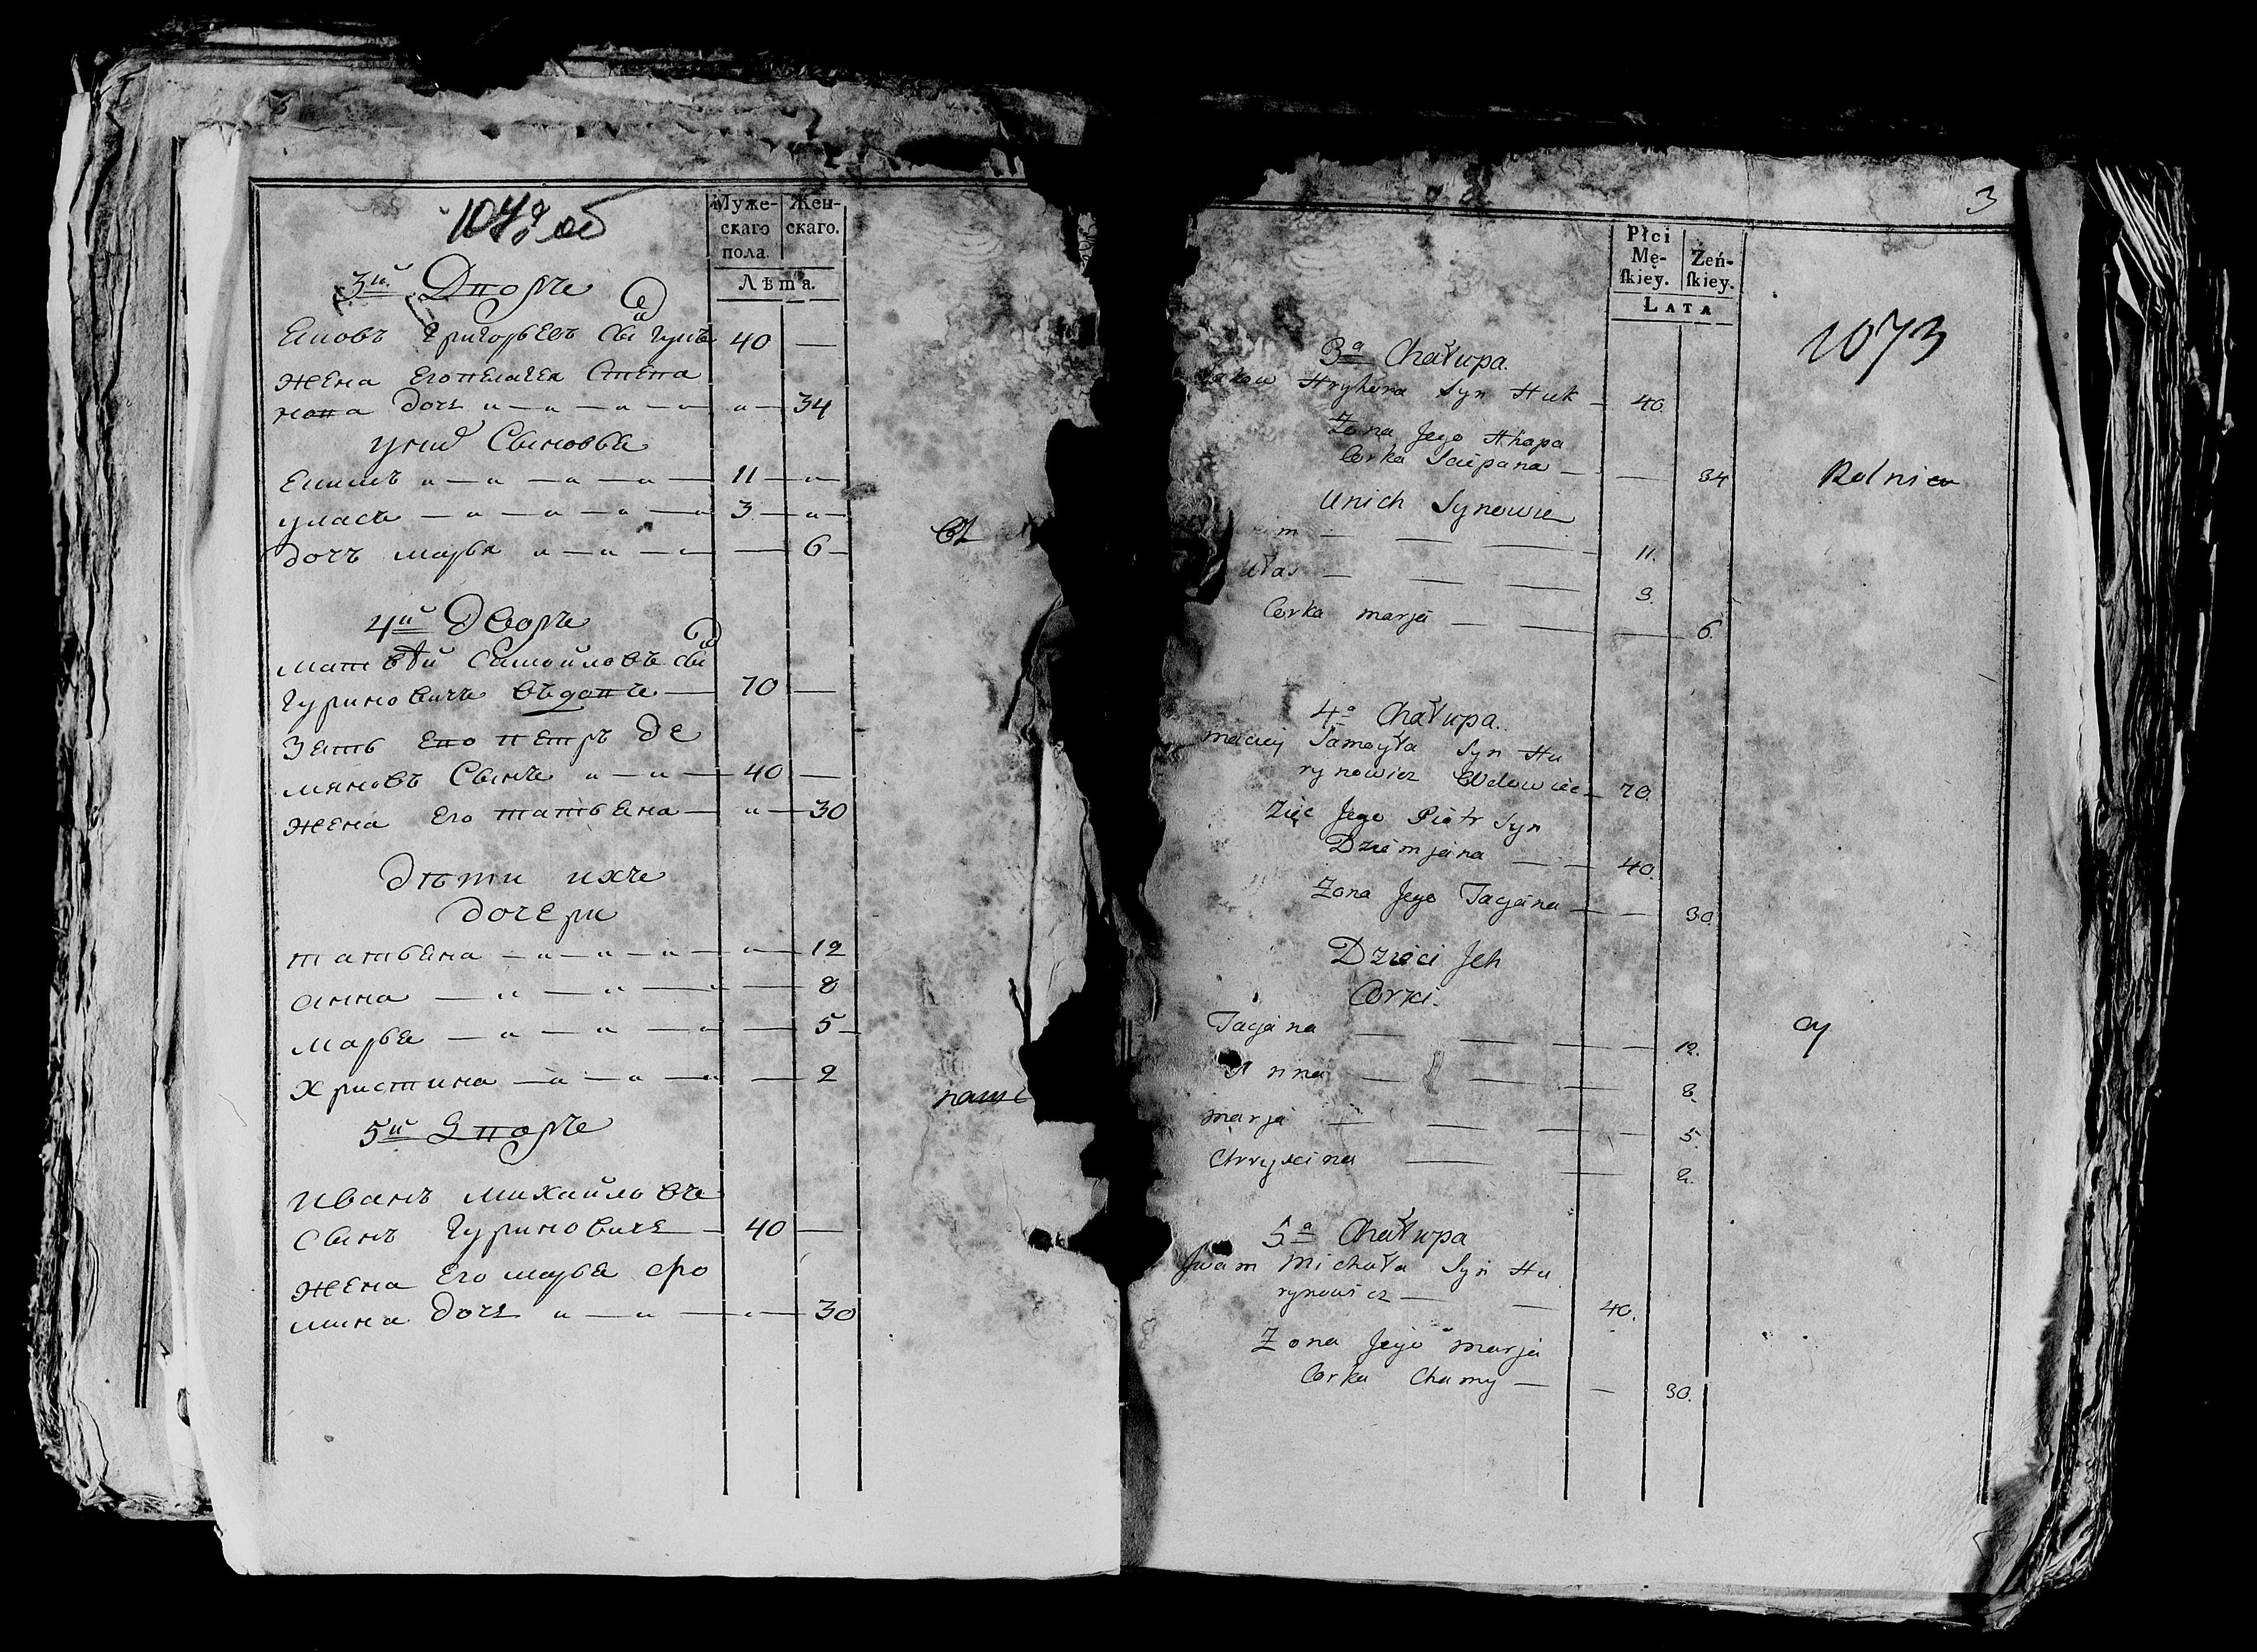 Муже-
скаго
пола.
Жен-
скаго.
Лѣта.
3й Дворъ
Яковъ Григорьевъ сынъ Гукъ 40 —
жена его пелагея Степа
нова дочь 34
у них Сыновья
Екимъ 11
уласъ 3
дочь марья 6
4й Дворъ
матвѣй Самойловъ сынъ
Гуриновичъ вдовъ 70 —
Зять Его петръ де
мяновъ Сынъ 40 —
жена Его татьяна 30
Дѣти ихъ
дочери
татьяна 12
анна 8
марья 5
христина 2
5й Дворъ
Иванъ михайловъ
Сынъ Гуриновичь 40 —
жена Его марья фо
мина дочь 30
3
1073
Płci
Mę-
ſkiey.
Żeń-
ſkiey.
LATA
3a Chałupa.
Jakow Hryhora Syn Huk 40.
Żona Jego Ahapa
Corka Sciepana 34
Rolnicy
Unich Synowie
11.
Ułas 3.
Corka marja 6.
4a Chałupa.
maciej Samoyła Syn Hu
rynowicz Wdowiec 70.
Zięc Jego Piotr Syn
Dziemjana 40.
Żona Jego Tacjana 30.
Dzieci Jch
Corki.
Tacjana 12.
Anna 8.
marja 5.
Chryscina 2.
5a Chałupa
Jwan Michała Syn Hu
rynowicz 40.
Żona Jego marja
Corka Chamy 30.